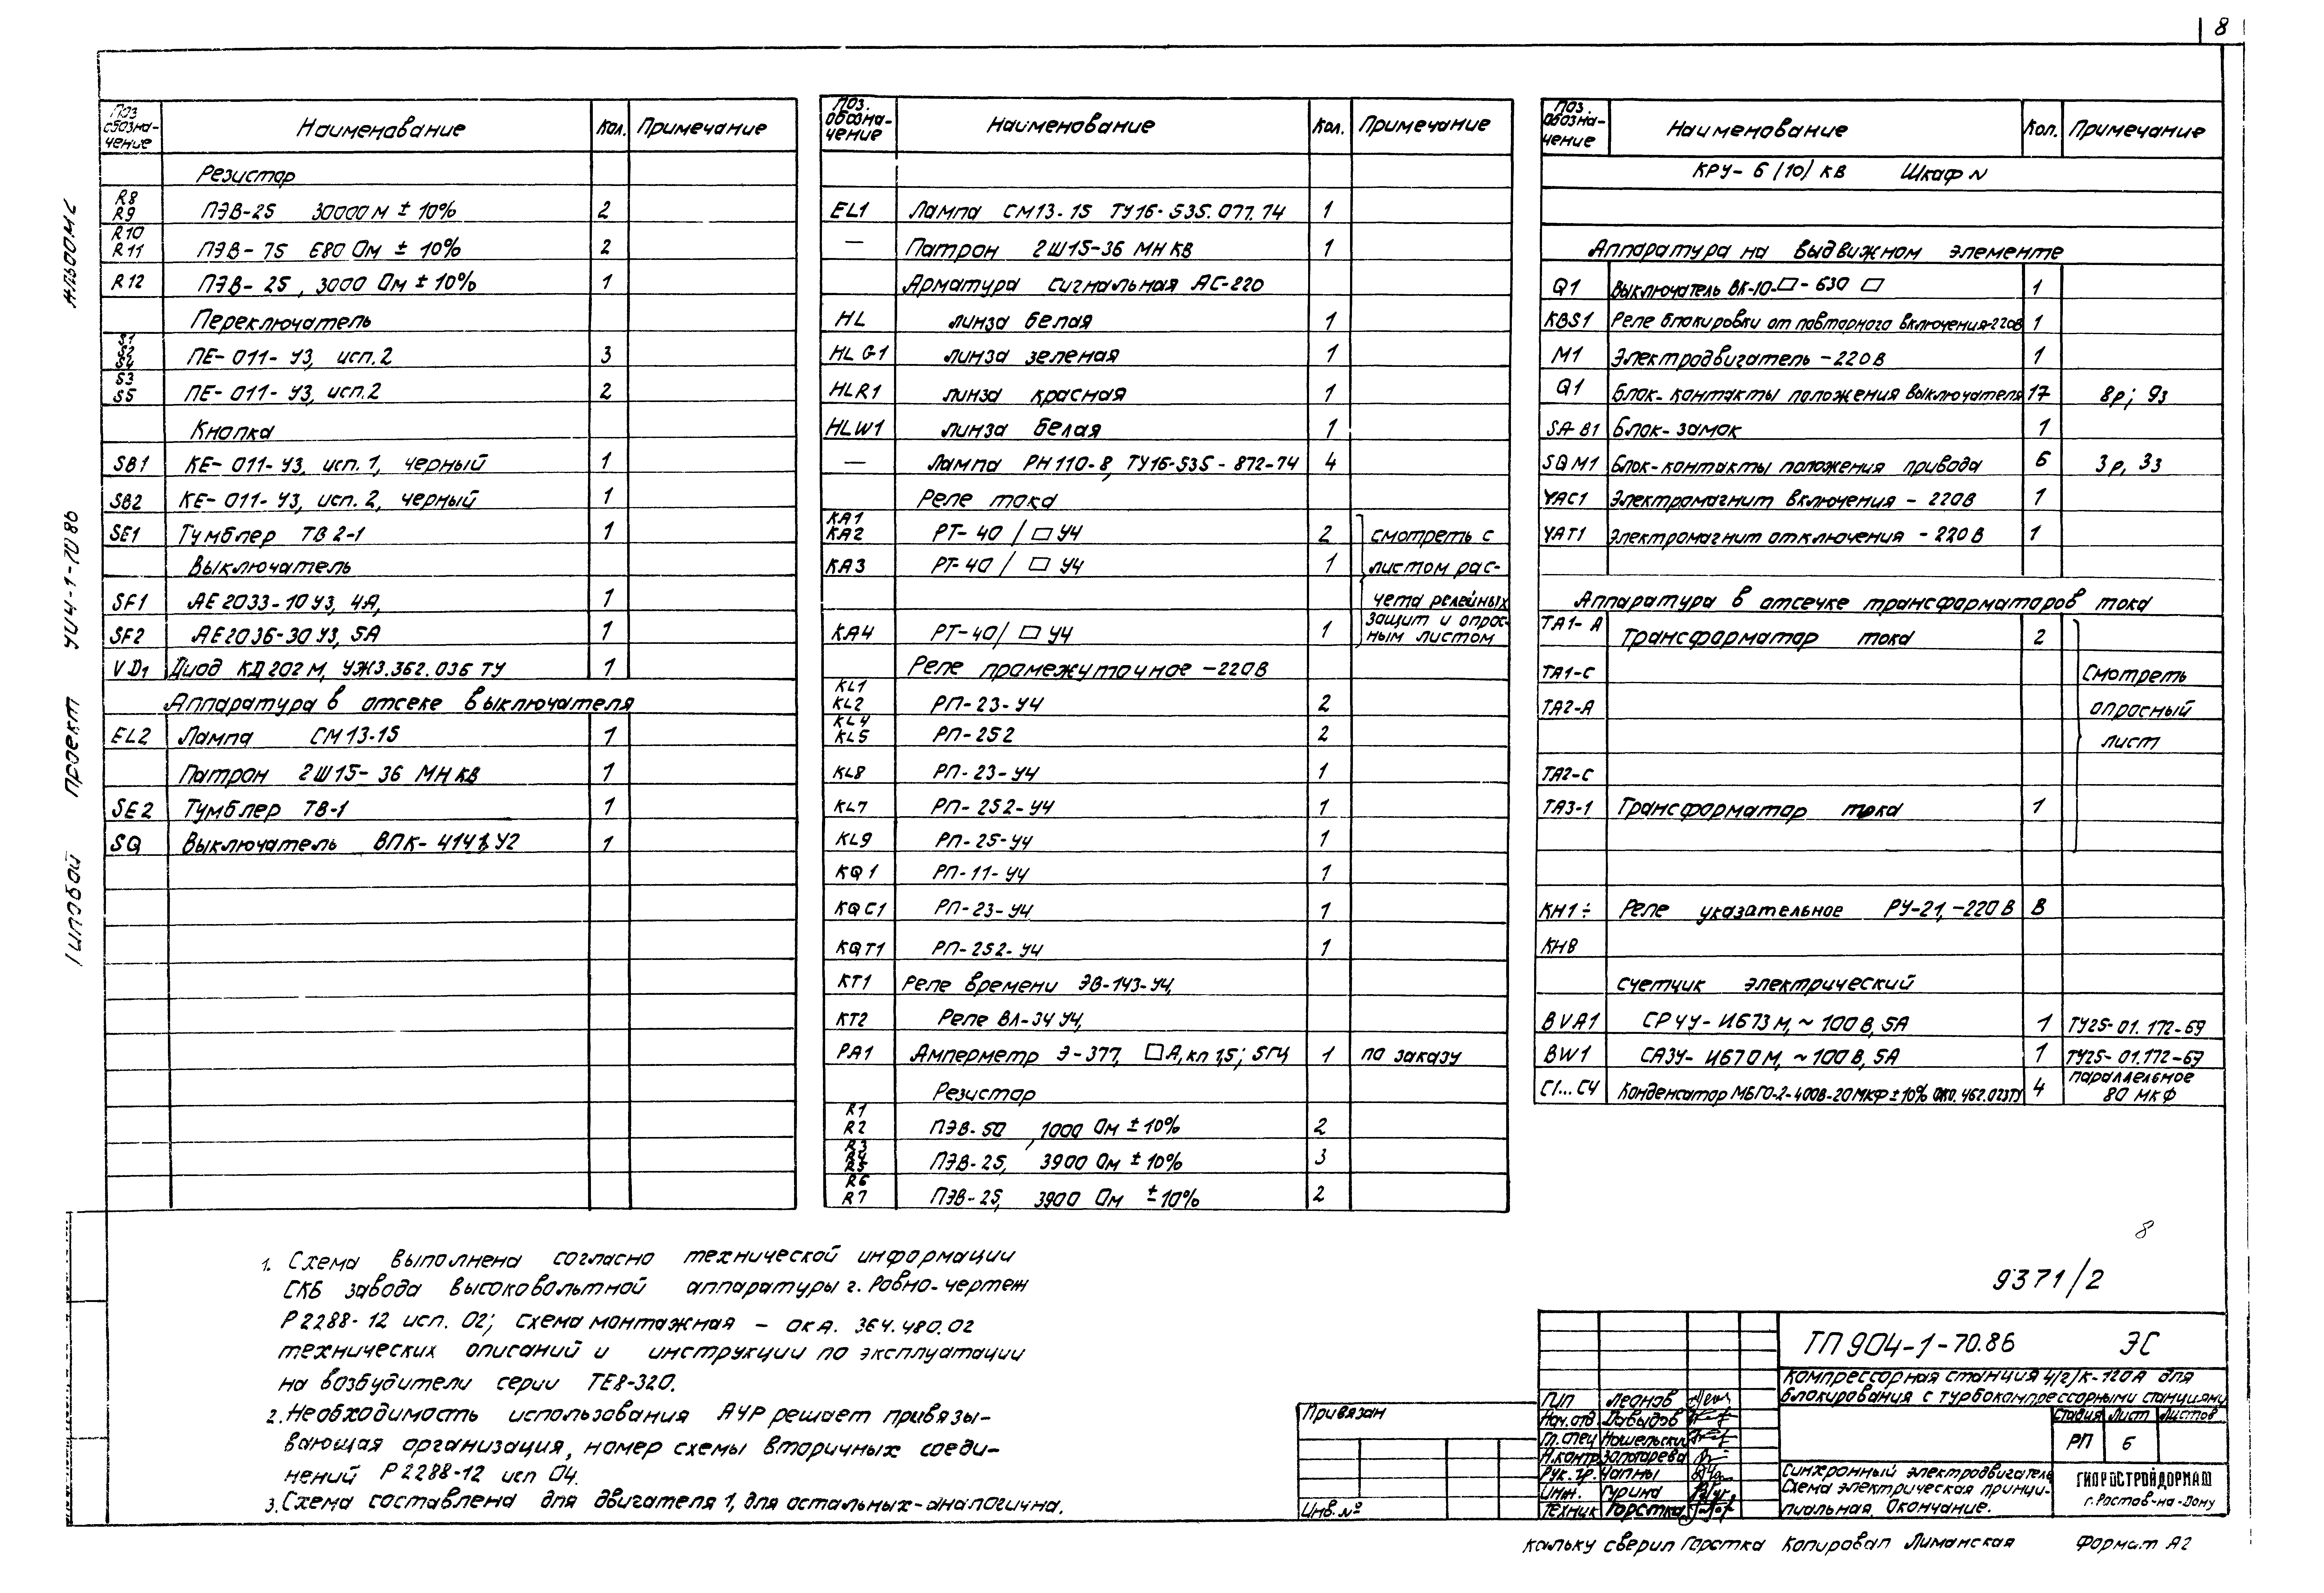 8
Поз. обозна-чение Наименование Кол. Примечание
Резистор
R8 R9 ПЭВ-25 3000 Ом ± 10% 2
R10 R11 ПЭВ-75 680 Ом ± 10% 2
R12 ПЭВ-25, 3000 Ом ± 10% 1
Переключатель
S1 S2 S4 ПЕ-011-У3, исп.2 3
S3 S5 ПЕ-011-У3, исп.2 2
Кнопка
SB1 КЕ-011-У3, исп.1, черный 1
SB2 КЕ-011-У3, исп.2, черный 1
SE1 Тумблер ТВ2-1 1
Выключатель
SF1 АЕ2033-10У3, 4А, 1
SF2 АЕ2036-30У3, 5А 1
VD1 Диод КД202М, УЖ3.362.036 ТУ 1
Аппаратура в отсеке выключателя
EL2 Лампа СМ13-15 1
Патрон 2Ш15-36 МН КВ 1
SE2 Тумблер ТВ-1 1
SQ Выключатель ВПК-4141, У2 1
Поз. обозна-чение Наименование Кол. Примечание
EL1 Лампа СМ13-15 ТУ16-535.077.74 1
— Патрон 2Ш15-36 МН КВ 1
Арматура сигнальная АС-220
HL линза белая 1
HLG1 линза зеленая 1
HLR1 линза красная 1
HLW1 линза белая 1
— Лампа РН110-8, ТУ16-535-872-74 4
Реле тока
KA1 KA2 РТ-40/□ У4 2 смотреть с
KA3 РТ-40/□ У4 1 листом рас-
чета релейных
KA4 РТ-40/□ У4 1 защит и опрос-ным листом
Реле промежуточное -220В
KL1 KL2 РП-23-У4 2
KL4 KL5 РП-252 2
KL8 РП-23-У4 1
KL7 РП-252-У4 1
KL9 РП-25-У4 1
KQ1 РП-11-У4 1
KQC1 РП-23-У4 1
KQT1 РП-252-У4 1
KT1 Реле времени ЭВ-143-У4,
KT2 Реле ВЛ-34 У4,
PA1 Амперметр Э-377, □А, кл 1,5; 5ГЦ 1 по заказу
Резистор
R1 R2 ПЭВ-50, 1000 Ом ± 10% 2
R3 R4 R5 ПЭВ-25, 3900 Ом ± 10% 3
R6 R7 ПЭВ-25, 3900 Ом ± 10% 2
Поз. обозна-чение Наименование Кол. Примечание
КРУ-6(10)КВ Шкаф N
Аппаратура на выдвижном элементе
Q1 Выключатель ВК-10-□-630 □ 1
KBS1 Реле блокировки от повторного включения-220В 1
M1 Электродвигатель -220В 1
Q1 Блок-контакты положения выключателя 17 8р; 9з
SA-B1 Блок-замок 1
SQM1 Блок-контакты положения привода 6 3р, 3з
YAC1 Электромагнит включения -220В 1
YAT1 Электромагнит отключения -220В 1
Аппаратура в отсечке трансформаторов тока
TA1-A Трансформатор тока 2
TA1-C Смотреть
TA2-A опросный
лист
TA2-C
TA3-1 Трансформатор тока 1
KH1÷ Реле указательное РУ-21, -220В 8
KH8
счетчик электрический
BVA1 СР4У-И673М, ~100В, 5А 1 ТУ25-01.172-69
BW1 САЗУ-И670М, ~100В, 5А 1 ТУ25-01.172-69
C1...C4 Конденсатор МБГО-2-400В-20МКФ±10% ОЖО.462.023ТУ 4 параллельное 80 МКФ
1. Схема выполнена согласно технической информации
СКБ завода высоковольтной аппаратуры г. Ровно-чертеж
Р2288-12 исп. 02; схема монтажная - ОКА. 364.480.02
технических описаний и инструкции по эксплуатации
на возбудители серии ТЕ8-320.
2. Необходимость использования АЧР решает привязы-
вающая организация, номер схемы вторичных соеди-
нений Р2288-12 исп 04.
3. Схема составлена для двигателя 1, для остальных-аналогична.
8
9371/2
ТП 904-1-70.86 ЭС
Компрессорная станция 4/2/К-120А для
блокирования с турбокомпрессорными станциями
Стадия Лист Листов
РП 6
Синхронный электродвигатель
Схема электрическая принци-
пиальная. Окончание.
ГИПРОСТРОЙДОРМАШ
г. Ростов-на-Дону
ГИП Леонов
Нач.отд. Давыдов
Гл.спец Кошельский
Н.контр. Золотарева
Рук.гр. Чапны
Инж. Гурина
Техник Горстка
Привязан
Инв.№
кальку сверил Горстка Копировал Лиманская Формат А2
Типовой проект
Альбом